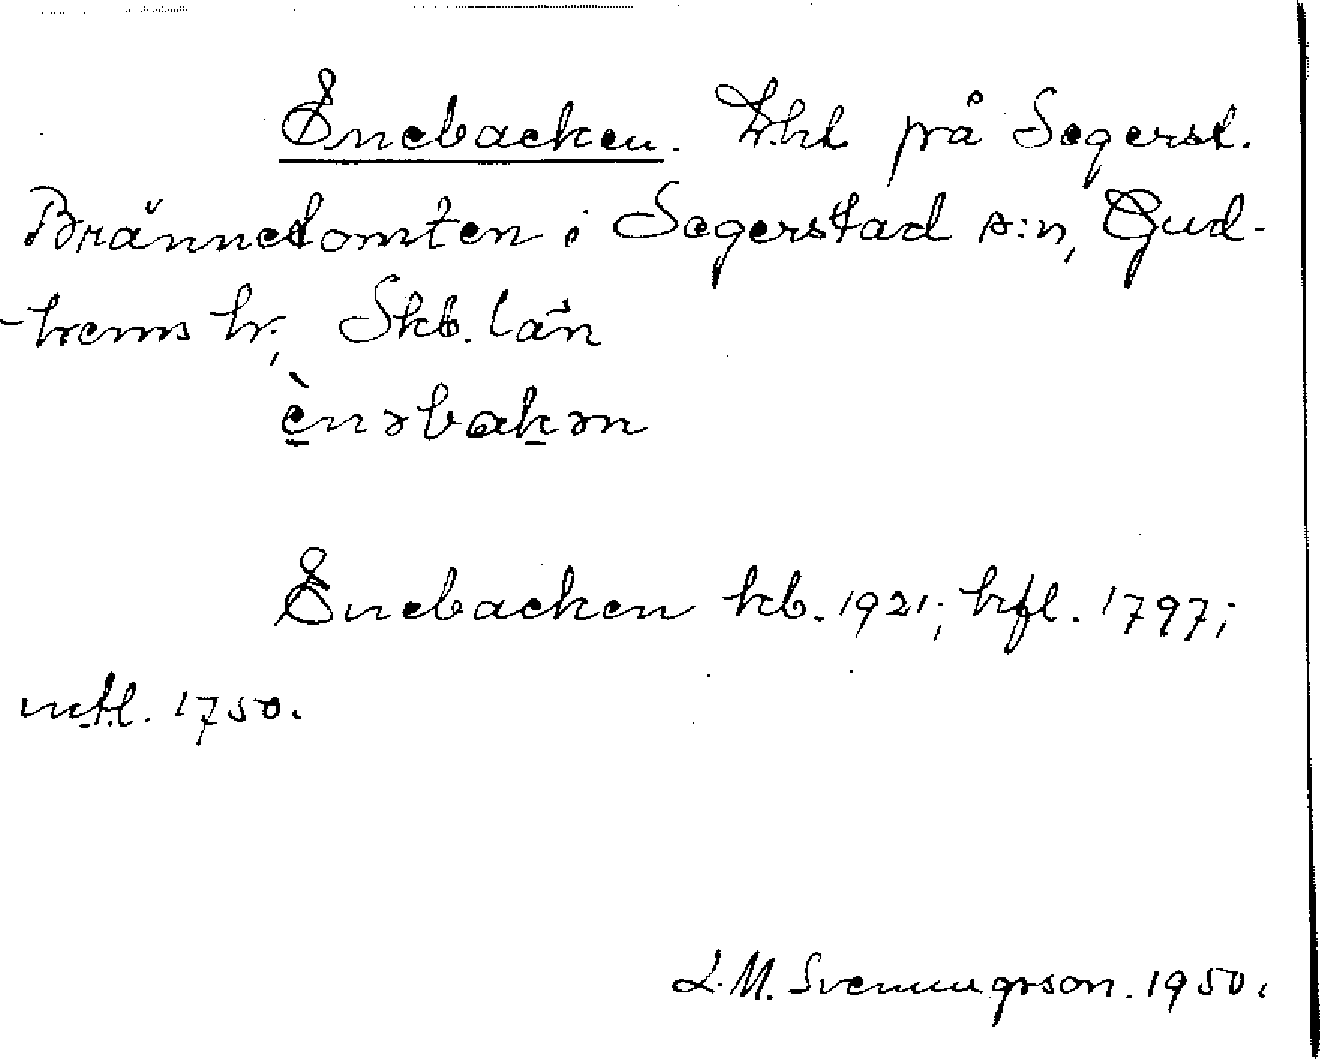 Enebacken. Lht på Segerst.
Brännetomten i Segerstad s:n, Gud-
-hems hr, Skb. län
ènəbakən
Enebacken kb. 1921; hfl. 1797;
mtl. 1750.
L.M. Svenungsson. 1950.